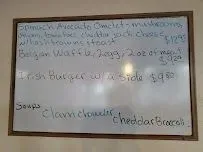 Spinach Avocado Omelet - mushrooms,
onions, tomatoes, cheddar jack cheese,
w/hashbrowns & toast
Belgian Waffle, 2egg, 2oz of meat
$9.29
Irish Burger w/a side $9.50
Soups
Clam chowder
Cheddar Broccoli